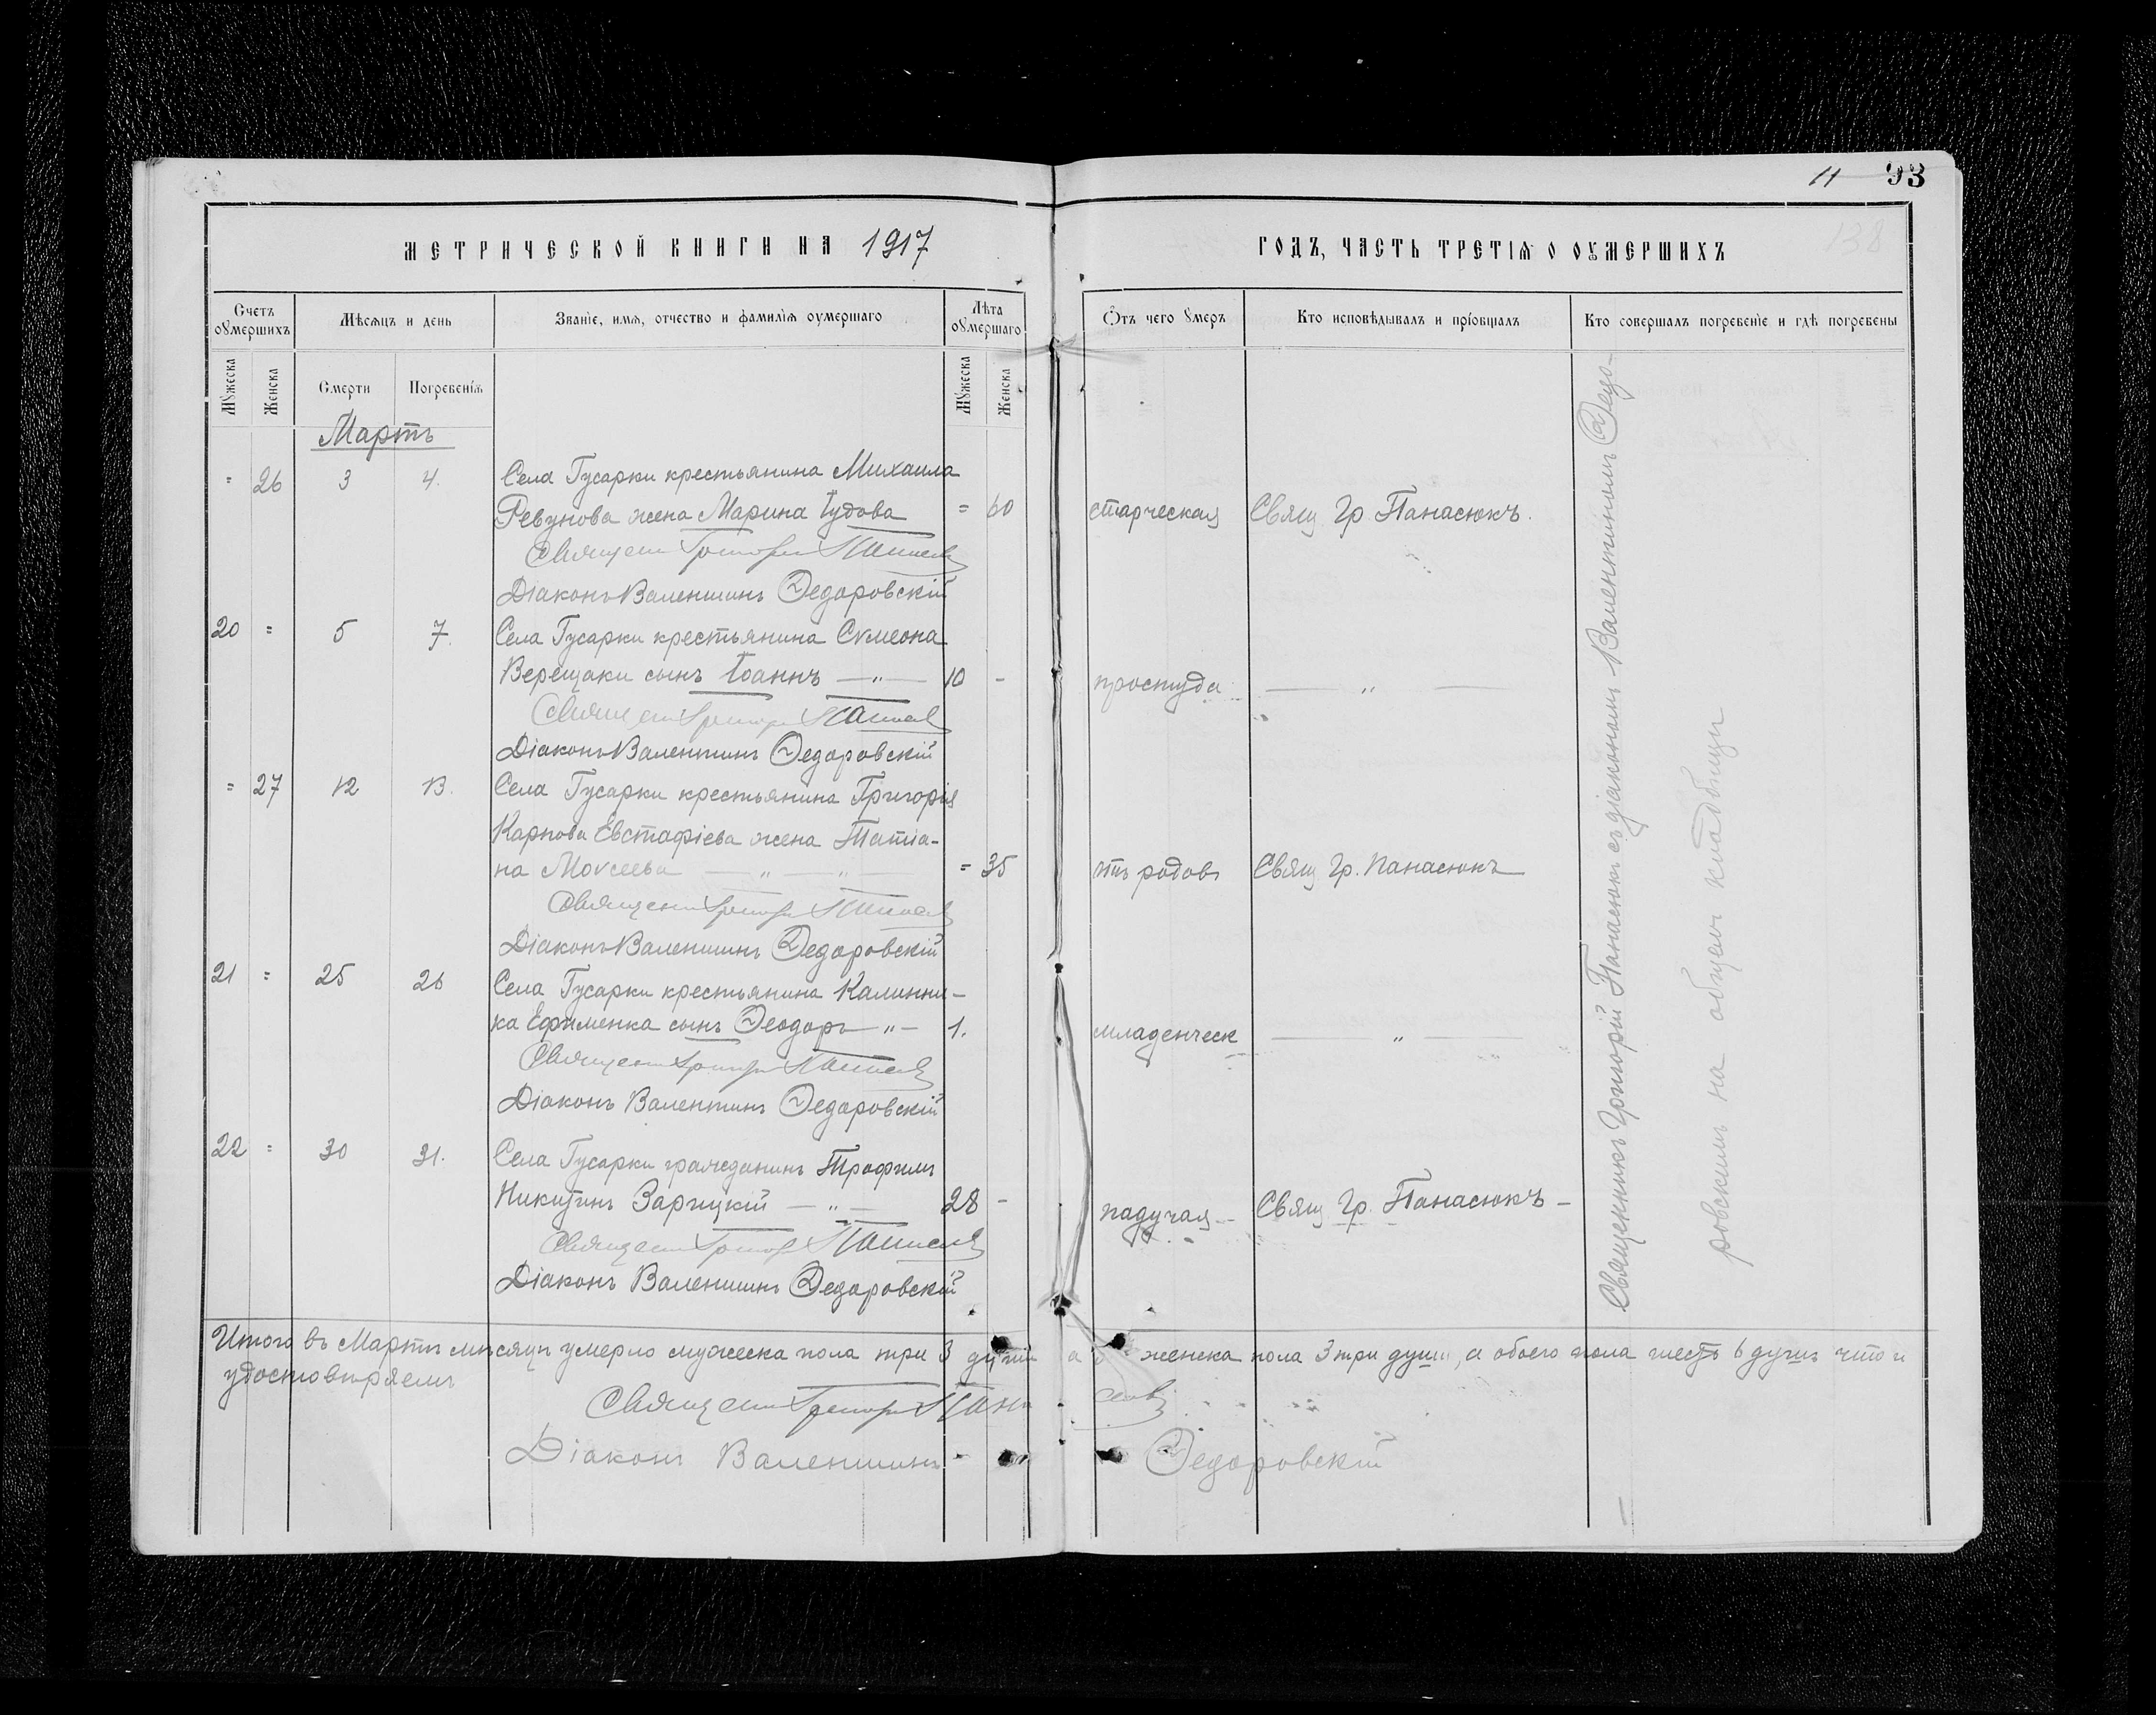 11 93
138
МЕТРИЧЕСКОЙ КНИГИ НА 1917
ГОДЪ, ЧАСТЬ ТРЕТІѦ О ОУМЕРШИХЪ
Счетъ оумершихъ
Мѣсяцъ и день
Званіе, имя, отчество и фамилія оумершаго
Лѣта оумершаго
Отъ чего умеръ
Кто исповѣдывалъ и пріобщалъ
Кто совершалъ погребеніе и гдѣ погребены
Мужеска
Женска
Смерти
Погребенія
Мужеска
Женска
Мартъ
= 26 3 4. Села Гусарки крестьянина Михаила
Ревунова жена Марина Іудова = 60 старческая Свящ Гр. Панасюкъ.
Священ Григорій Панасюкъ
Діаконъ Валентинъ Ѳедоровскій
20 = 5 7. Села Гусарки крестьянина Сѵмеона
Верещаки сынъ Іоаннъ — " — 10 - простуда — " —
Священ Григорій Панасюкъ
Діаконъ Валентинъ Ѳедоровскій
= 27 12 13. Села Гусарки крестьянина Григорія
Карпова Евстафіева жена Татіа-
на Моѵсеева — " — " — = 35 отъ родовъ Свящ Гр. Панасюкъ
Священ Григорій Панасюкъ
Діаконъ Валентинъ Ѳедоровскій
21 = 25 26 Села Гусарки крестьянина Калинни-
ка Ефименка сынъ Ѳеодоръ — " — 1. младенческ — " —
Священ Григорій Панасюкъ
Діаконъ Валентинъ Ѳедоровскій
22 = 30 31. Села Гусарки гражданинъ Трофимъ
Никитинъ Зарицкій — " — 28 - падучая Свящ Гр. Панасюкъ —
Священ Григорій Панасюкъ
Діаконъ Валентинъ Ѳедоровскій
Священникъ Григорій Панасюкъ съ діакономъ Валентиномъ Ѳедо-
ровскимъ на общемъ кладбищѣ
Итого въ Мартѣ мѣсяцѣ умерло мужеска пола три 3 души а женска пола 3 три души, а обоего пола шесть 6 душъ что и
удостовѣряемъ
Священ Григорій Панасюкъ
Діаконъ Валентинъ Ѳедоровскій